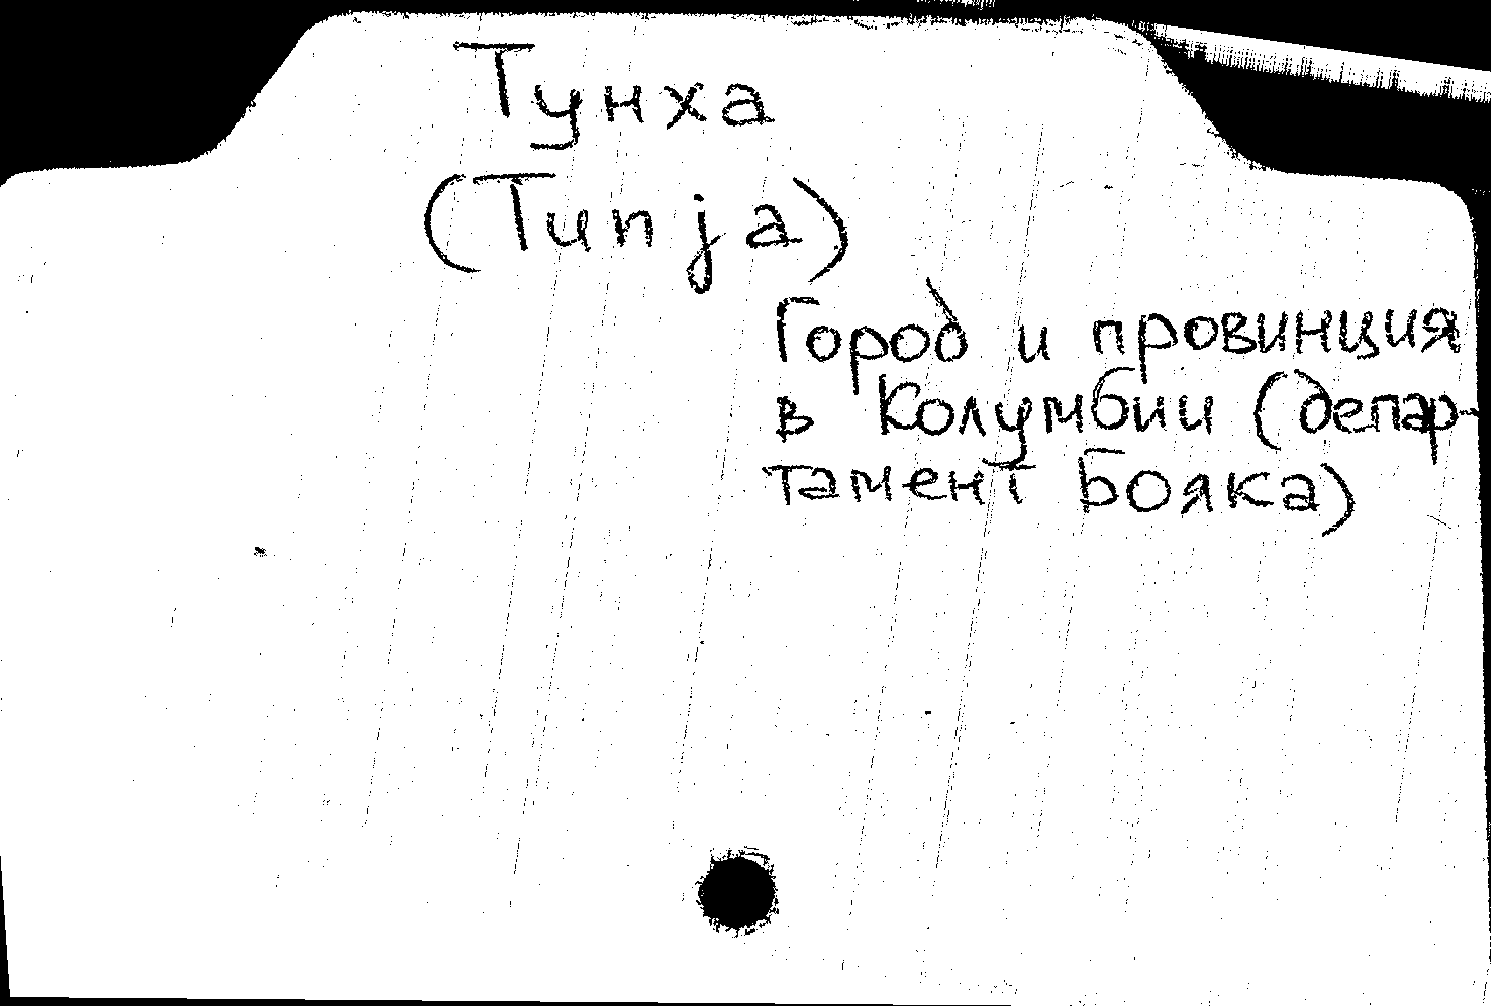 Тунха
(Tunja)
Город и провинция
в Колумбии (депар-
тамент Бояка)